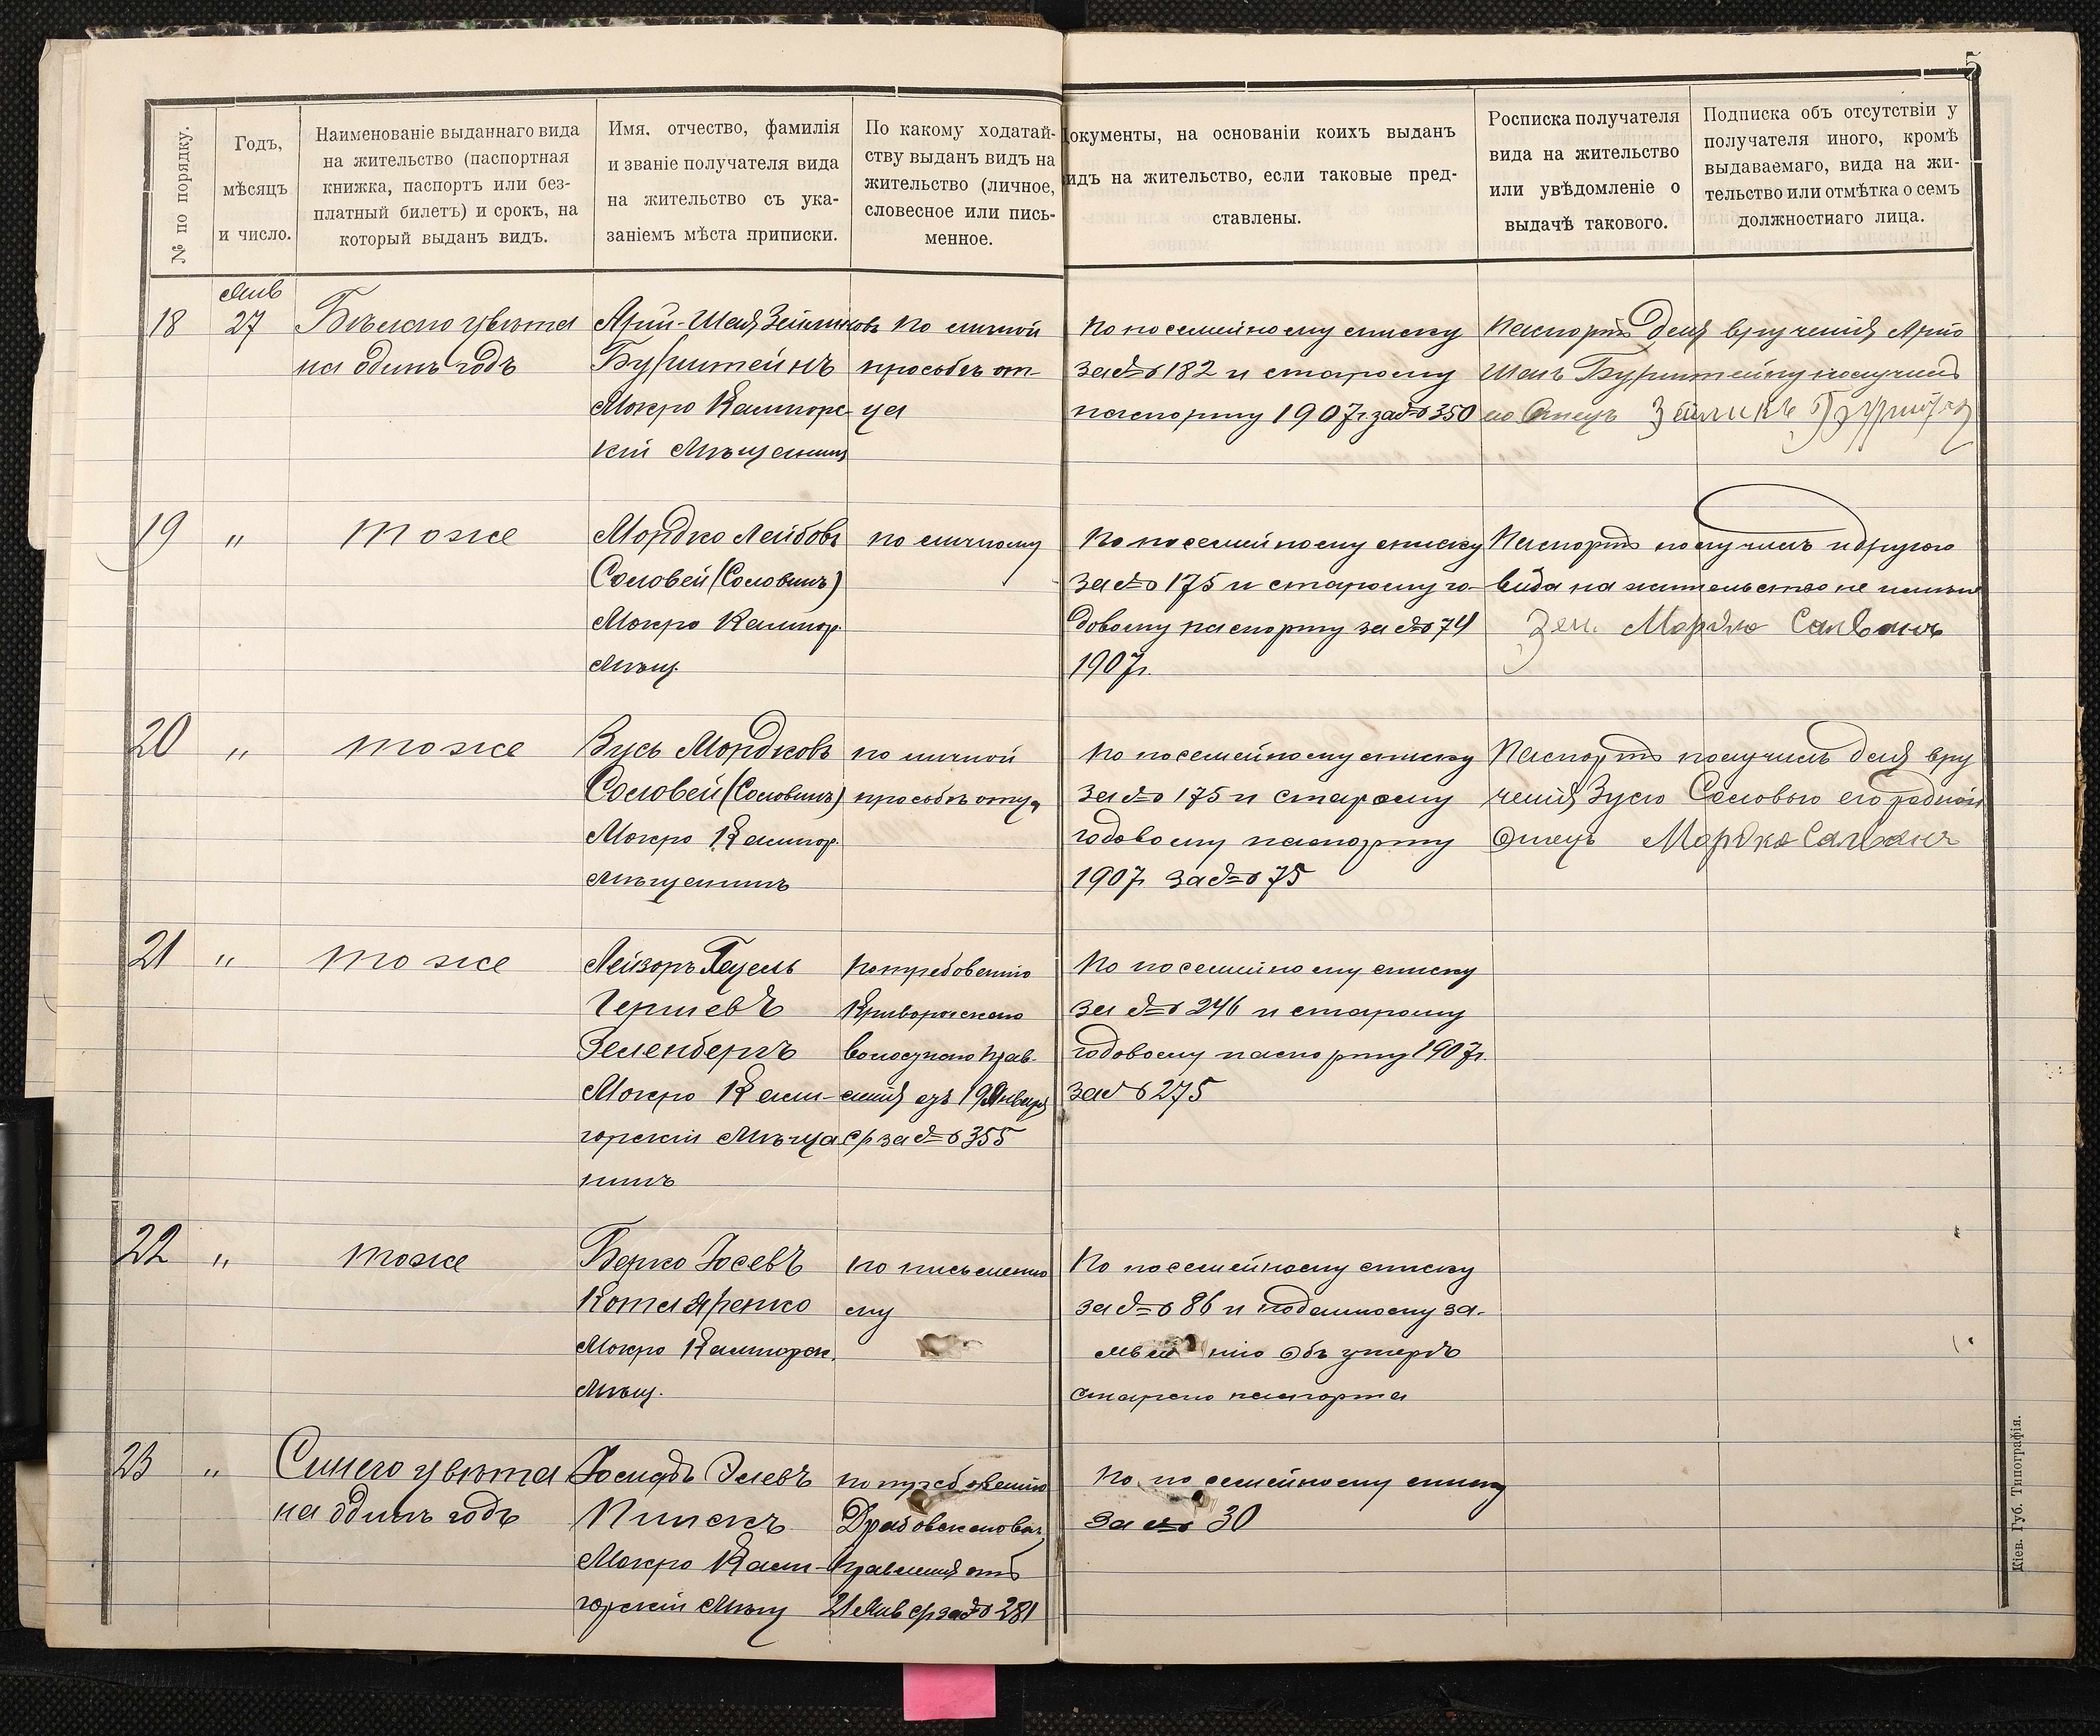 5
№ по порядку.
Годъ,
мѣсяцъ
и число.
Наименованіе выданнаго вида
на жительство (паспортная
книжка, паспортъ или без-
платный билетъ) и срокъ, на
который выданъ видъ.
Имя, отчество, фамилія
и званіе получателя вида
на жительство съ ука-
заніемъ мѣста приписки.
По какому ходатай-
ству выданъ видъ на
жительство (личное,
словесное или пись-
менное.
Документы, на основаніи коихъ выданъ
видъ на жительство, если таковые пред-
ставлены.
Росписка получателя
вида на жительство
или увѣдомленіе о
выдачѣ такового.
Подписка объ отсутствіи у
получателя иного, кромѣ
выдаваемаго, вида на жи-
тельство или отмѣтка о семъ
должностнаго лица.
18
Янв
27
Бѣлаго цвѣта
на одинъ годъ
Арій-Шая Зейликовъ
Бурштейнъ
Мокро Калигорс-
кій Мѣщанинъ
по личной
просьбѣ от-
ца
По посемейному списку
за № 182 и старому
паспорту 1907 г. за № 350
Паспортъ для врученія Арію
Шаѣ Бурштейну получилъ
его Отецъ Зейликъ
19
"
тоже
Мордко Лейбовъ
Соловей (Соловинъ)
Мокро Калигор.
Мѣщ.
по личному
По посемейному списку
за № 175 и старому го-
довому паспорту за № 74
1907 г.
Паспортъ получилъ и другого
вида на жительство не
Мордко
20
"
тоже
Зусь Мордковъ
Соловей (Соловинъ)
Мокро Калигор.
Мѣщанинъ
по личной
просьбѣ отца
По посемейному списку
за № 175 и старому
годовому паспорту
1907 г. за № 75
Паспортъ получилъ для вру
ченія Зусю Соловью его родной
Отецъ Мордко
21
"
тоже
Лейзоръ Гецель
Гершевъ
Зеленбергъ
Мокро Кали-
горскій Мѣща
нинъ
По требованію
Криворожскаго
волостного прав-
ленія отъ 19 Января
с/г за № 355
По посемейному списку
за № 246 и старому
годовому паспорту 1907 г.
за № 275
22
"
тоже
Берко Іосевъ
Котляренко
Мокро Калигорск.
Мѣщ.
по письменно
му
По посемейному списку
за № 86 и поданному за-
явленію объ утерѣ
стараго паспорта
23
"
Синего цвѣта
на одинъ годъ
Іосифъ Элевъ
Пинскъ
Мокро Кали-
горскій Мѣщ
по требованію
Драбовскаго вол.
Правленія отъ
21 Янв с/г за № 281
По посемейному списку
за № 30
Кіев. Губ. Типографія.